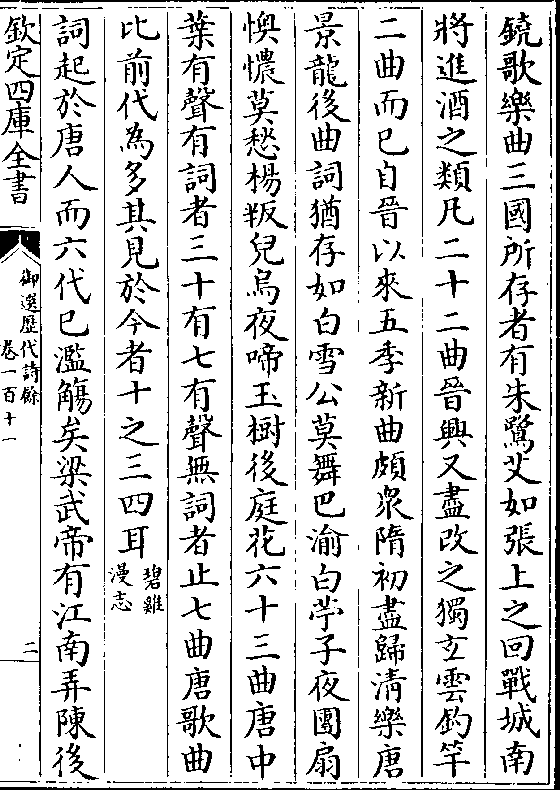 鐃歌樂曲三國所存者有朱鷺艾如張上之回戰城南
將進酒之類凡二十二曲晉興又盡改之獨𤣥雲釣竿
二曲而已自晉以來五季新曲頗衆隋初盡歸清樂唐
景龍後曲詞猶存如白雪公莫舞巴渝白苧子夜團扇
懊憹莫愁楊叛兒烏夜啼玉樹後庭花六十三曲唐中
葉有聲有詞者三十有七有聲無詞者止七曲唐歌曲
比前代為多其見於今者十之三四耳碧雞漫志
詞起於唐人而六代已濫觴矣梁武帝有江南弄陳後
欽定四庫全書
御選歷代詩餘
卷一百十一
二